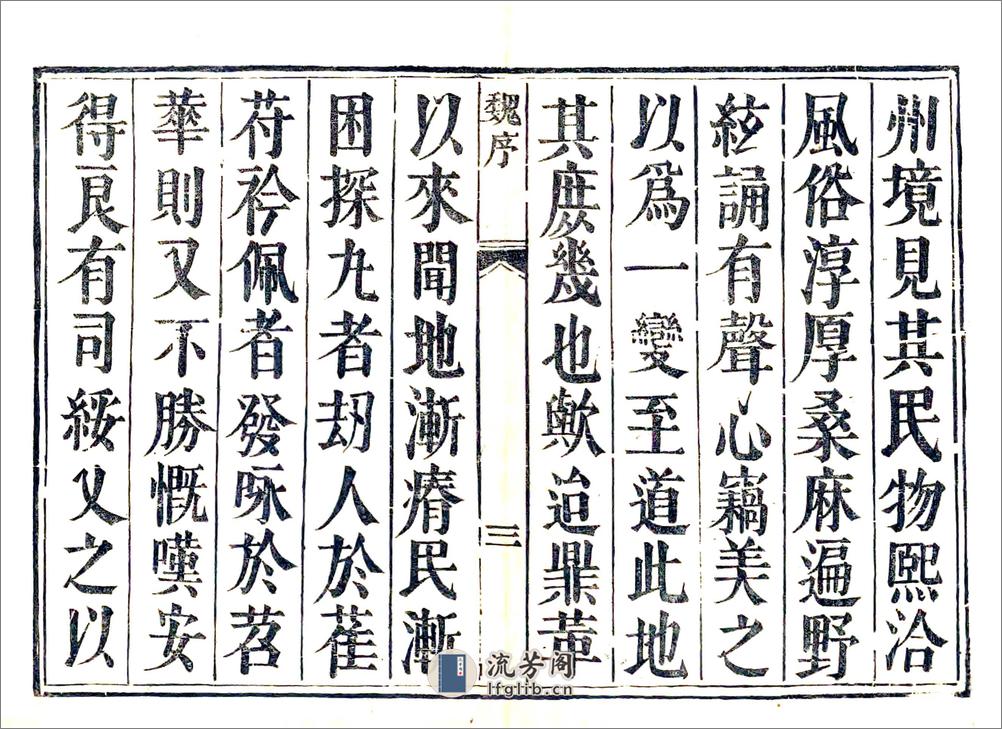 州境見其民物熙洽
風俗淳厚桑麻遍野
絃誦有聲心竊美之
以爲一變至道此地
其庶幾也歟迨鼎革
魏序
三
以來聞地漸瘠民漸
困探丸者刼人於萑
苻衿佩者發咏於苕
華則又不勝慨嘆安
得良有司綏乂之以
流芳阁
lfglib.cn